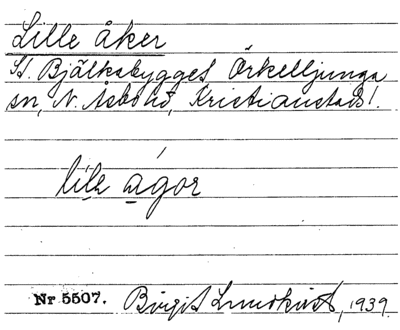 Lille åker
St. Bjälkabygget Örkelljunga
sn, N. Åsbo hd, Kristianstads l.
lile ågor
Nr 5507. Birgit Lundkvist, 1939.